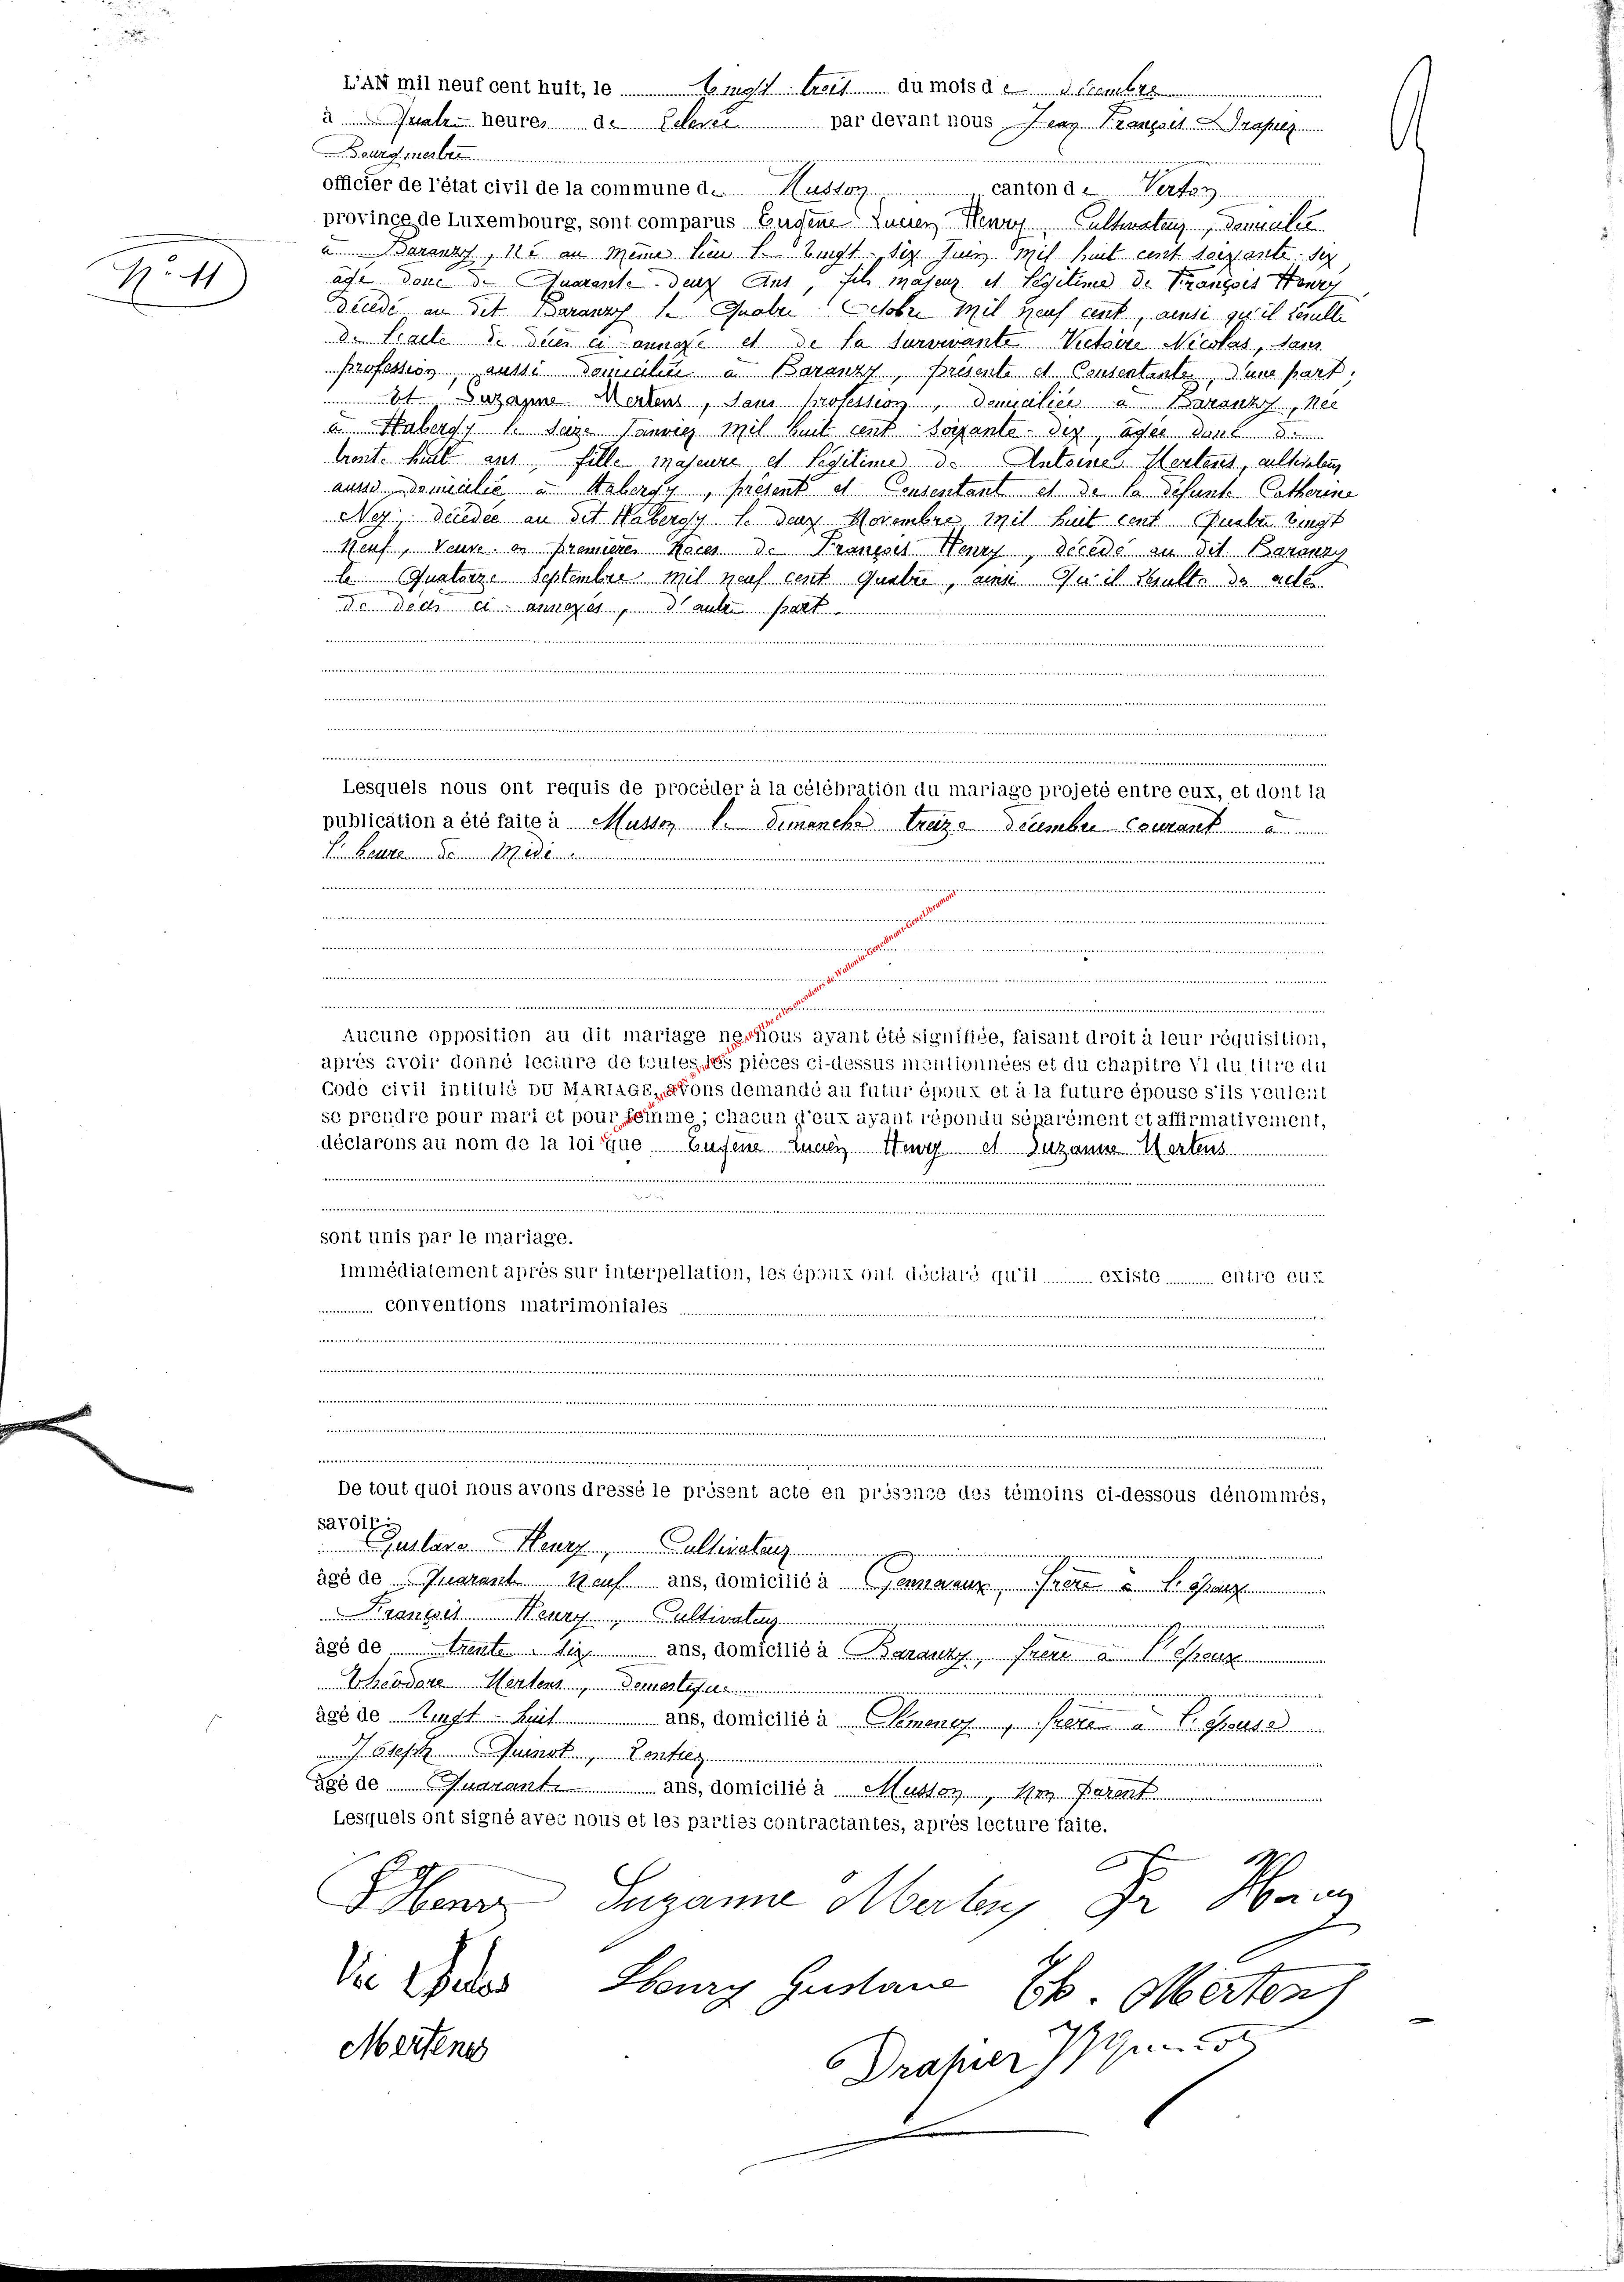 9
N° 11
L'AN mil neuf cent huit, le vingt trois du mois de décembre
à Quatre heures de Relevée par devant nous Jean François Drapier
Bourgmestre
officier de l'état civil de la commune de Musson canton de Virton
province de Luxembourg, sont comparus Eugène Lucien Henry Cultivateur, domicilié
à Baranzy, né au même lieu le vingt-six Juin mil huit cent soixante-six
âgé donc de Quarante-deux Ans, fils majeur et légitime de François Henry
décédé au dit Baranzy le Quatre Octobre mil neuf cent, ainsi qu'il résulte
de l'acte de décès ci annexé et de la survivante Victoire Nicolas, sans
profession, aussi domiciliée à Baranzy, présente et Consentante, d'une part;
Et Suzanne Mertens, sans profession, domiciliée à Baranzy, née
à Habergy le seize Janvier mil huit cent soixante-dix, âgée donc de
trente huit ans, fille majeure et légitime de Antoine Mertens, cultivateur
aussi domicilié à Habergy, présent et Consentant et de la défunte Catherine
Ney, décédée au dit Habergy le deux Novembre mil huit cent Quatre vingt
Neuf, Veuve en premières Noces de François Henry, décédé au dit Baranzy
le Quatorze Septembre mil neuf cent Quatre, ainsi Qu'il résulte des actes
de décès ci-annexés, d'autre part.
Lesquels nous ont requis de procéder à la célébration du mariage projeté entre eux, et dont la
publication a été faite à Musson le dimanche treize décembre courant à
l'heure de Midi.
Aucune opposition au dit mariage ne nous ayant été signifiée, faisant droit à leur réquisition,
après avoir donné lecture de toutes les pièces ci-dessus mentionnées et du chapitre VI du titre du
Code civil intitulé DU MARIAGE, avons demandé au futur époux et à la future épouse s'ils veulent
se prendre pour mari et pour femme; chacun d'eux ayant répondu séparément et affirmativement,
déclarons au nom de la loi que Eugène Lucien Henry et Suzanne Mertens
sont unis par le mariage.
Immédiatement après sur interpellation, les époux ont déclaré qu'il existe entre eux
conventions matrimoniales
De tout quoi nous avons dressé le présent acte en présence des témoins ci-dessous dénommés,
savoir:
Gustave Henry, Cultivateur
âgé de Quarante Neuf ans, domicilié à Gennevaux, frère à l'époux
François Henry, Cultivateur
âgé de trente six ans, domicilié à Baranzy, frère à l'époux
Théodore Mertens, Domestique
âgé de Vingt-huit ans, domicilié à frère à l'épouse
Joseph Quinot, Rentier
âgé de Quarante ans, domicilié à Musson, Non Parent
Lesquels ont signé avec nous et les parties contractantes, après lecture faite.
E Henry Suzanne Mertens Fr Henry
Henry Gustave Th. Mertens
Mertens
Drapier J Quinot